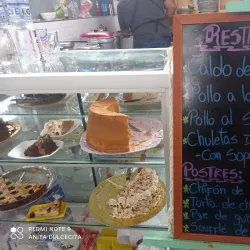 REST
Caldo de
Pollo a la
Pollo al
Chuletas
-Con Sop
POSTRES:
Chipón de
Tarta de
Pye de
REDMI NOTE 9
ANITA DULCECITA